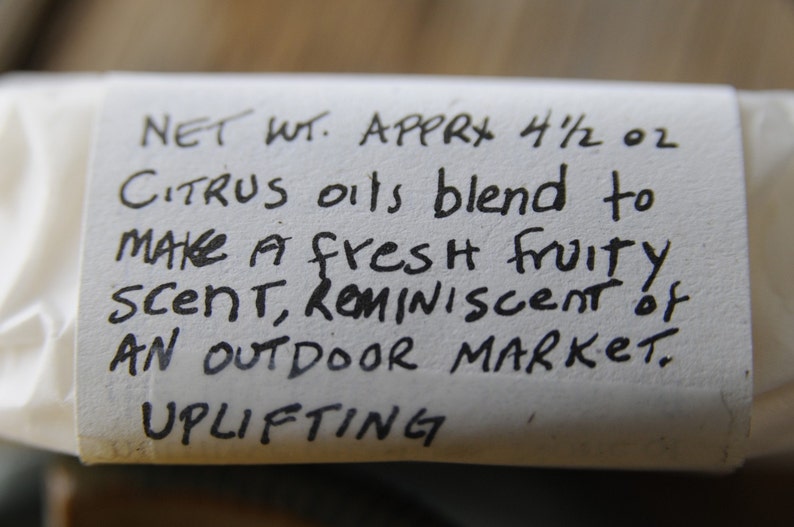 NET WT. APPRX 4 1/2 oz
CITRUS oils blend to
MAKe A fresH fruiTy
scenT, REMINIscenT of
AN OUTDOOR MARKeT.
UPLIFTING